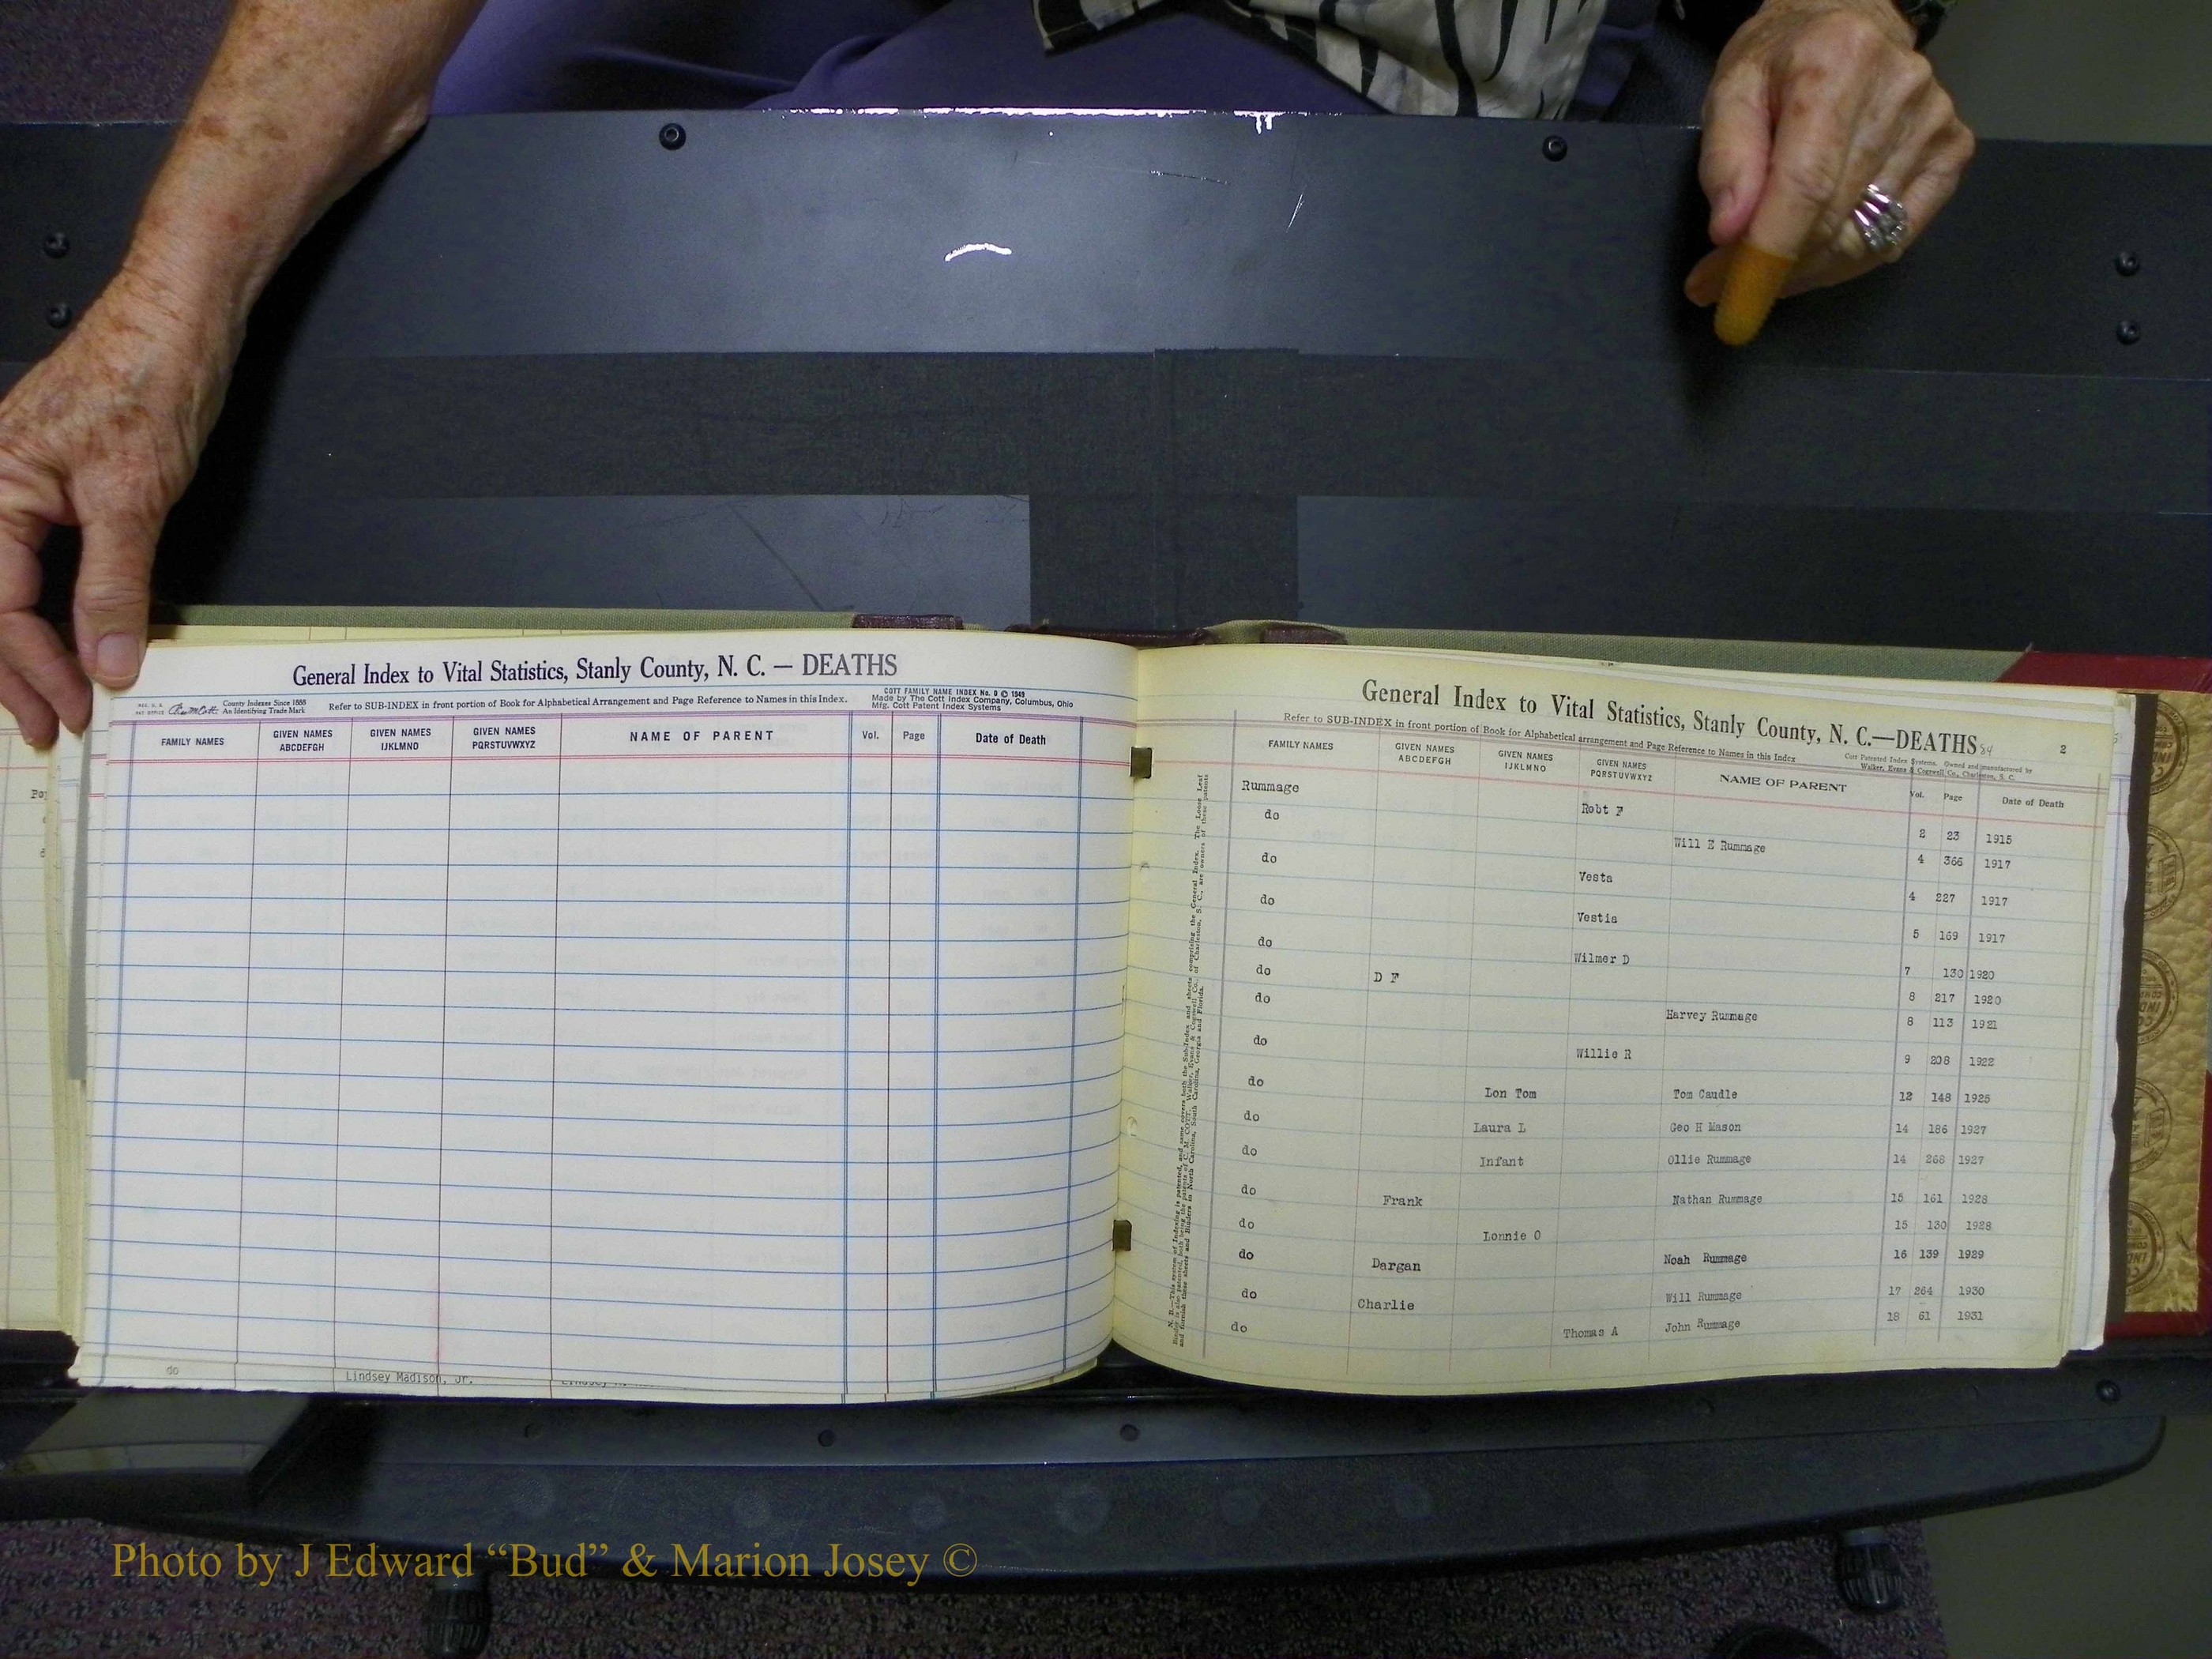 General Index to Vital Statistics, Stanly County, N. C. — DEATHS
County Indexes Since 1888
An Identifying Trade Mark
Refer to SUB-INDEX in front portion of Book for Alphabetical Arrangement and Page Reference to Names in this Index.
COTT FAMILY NAME INDEX No. 0 © 1949
Made by The Cott Index Company, Columbus, Ohio
Mfg. Cott Patent Index Systems
FAMILY NAMES GIVEN NAMES ABCDEFGH GIVEN NAMES IJKLMNO GIVEN NAMES PQRSTUVWXYZ NAME OF PARENT Vol. Page Date of Death
do Lindsey Madison, Jr.
General Index to Vital Statistics, Stanly County, N. C.—DEATHS 84 2
Refer to SUB-INDEX in front portion of Book for Alphabetical arrangement and Page Reference to Names in this Index
Cott Patented Index Systems. Owned and manufactured by
Walker, Evans & Cogswell Co., Charleston, S. C.
FAMILY NAMES GIVEN NAMES ABCDEFGH GIVEN NAMES IJKLMNO GIVEN NAMES PQRSTUVWXYZ NAME OF PARENT Vol. Page Date of Death
Rummage Robt F 2 23 1915
do Will E Rummage 4 366 1917
do Vesta 4 227 1917
do Vestia 5 169 1917
do Wilmer D 7 130 1920
do D F 8 217 1920
do Harvey Rummage 8 113 1921
do Willie R 9 208 1922
do Lon Tom Tom Caudle 12 148 1925
do Laura L Geo H Mason 14 186 1927
do Infant Ollie Rummage 14 268 1927
do Frank Nathan Rummage 15 161 1928
do Lonnie O 15 130 1928
do Dargan Noah Rummage 16 139 1929
do Charlie Will Rummage 17 264 1930
do Thomas A John Rummage 18 61 1931
Photo by J Edward “Bud” & Marion Josey ©